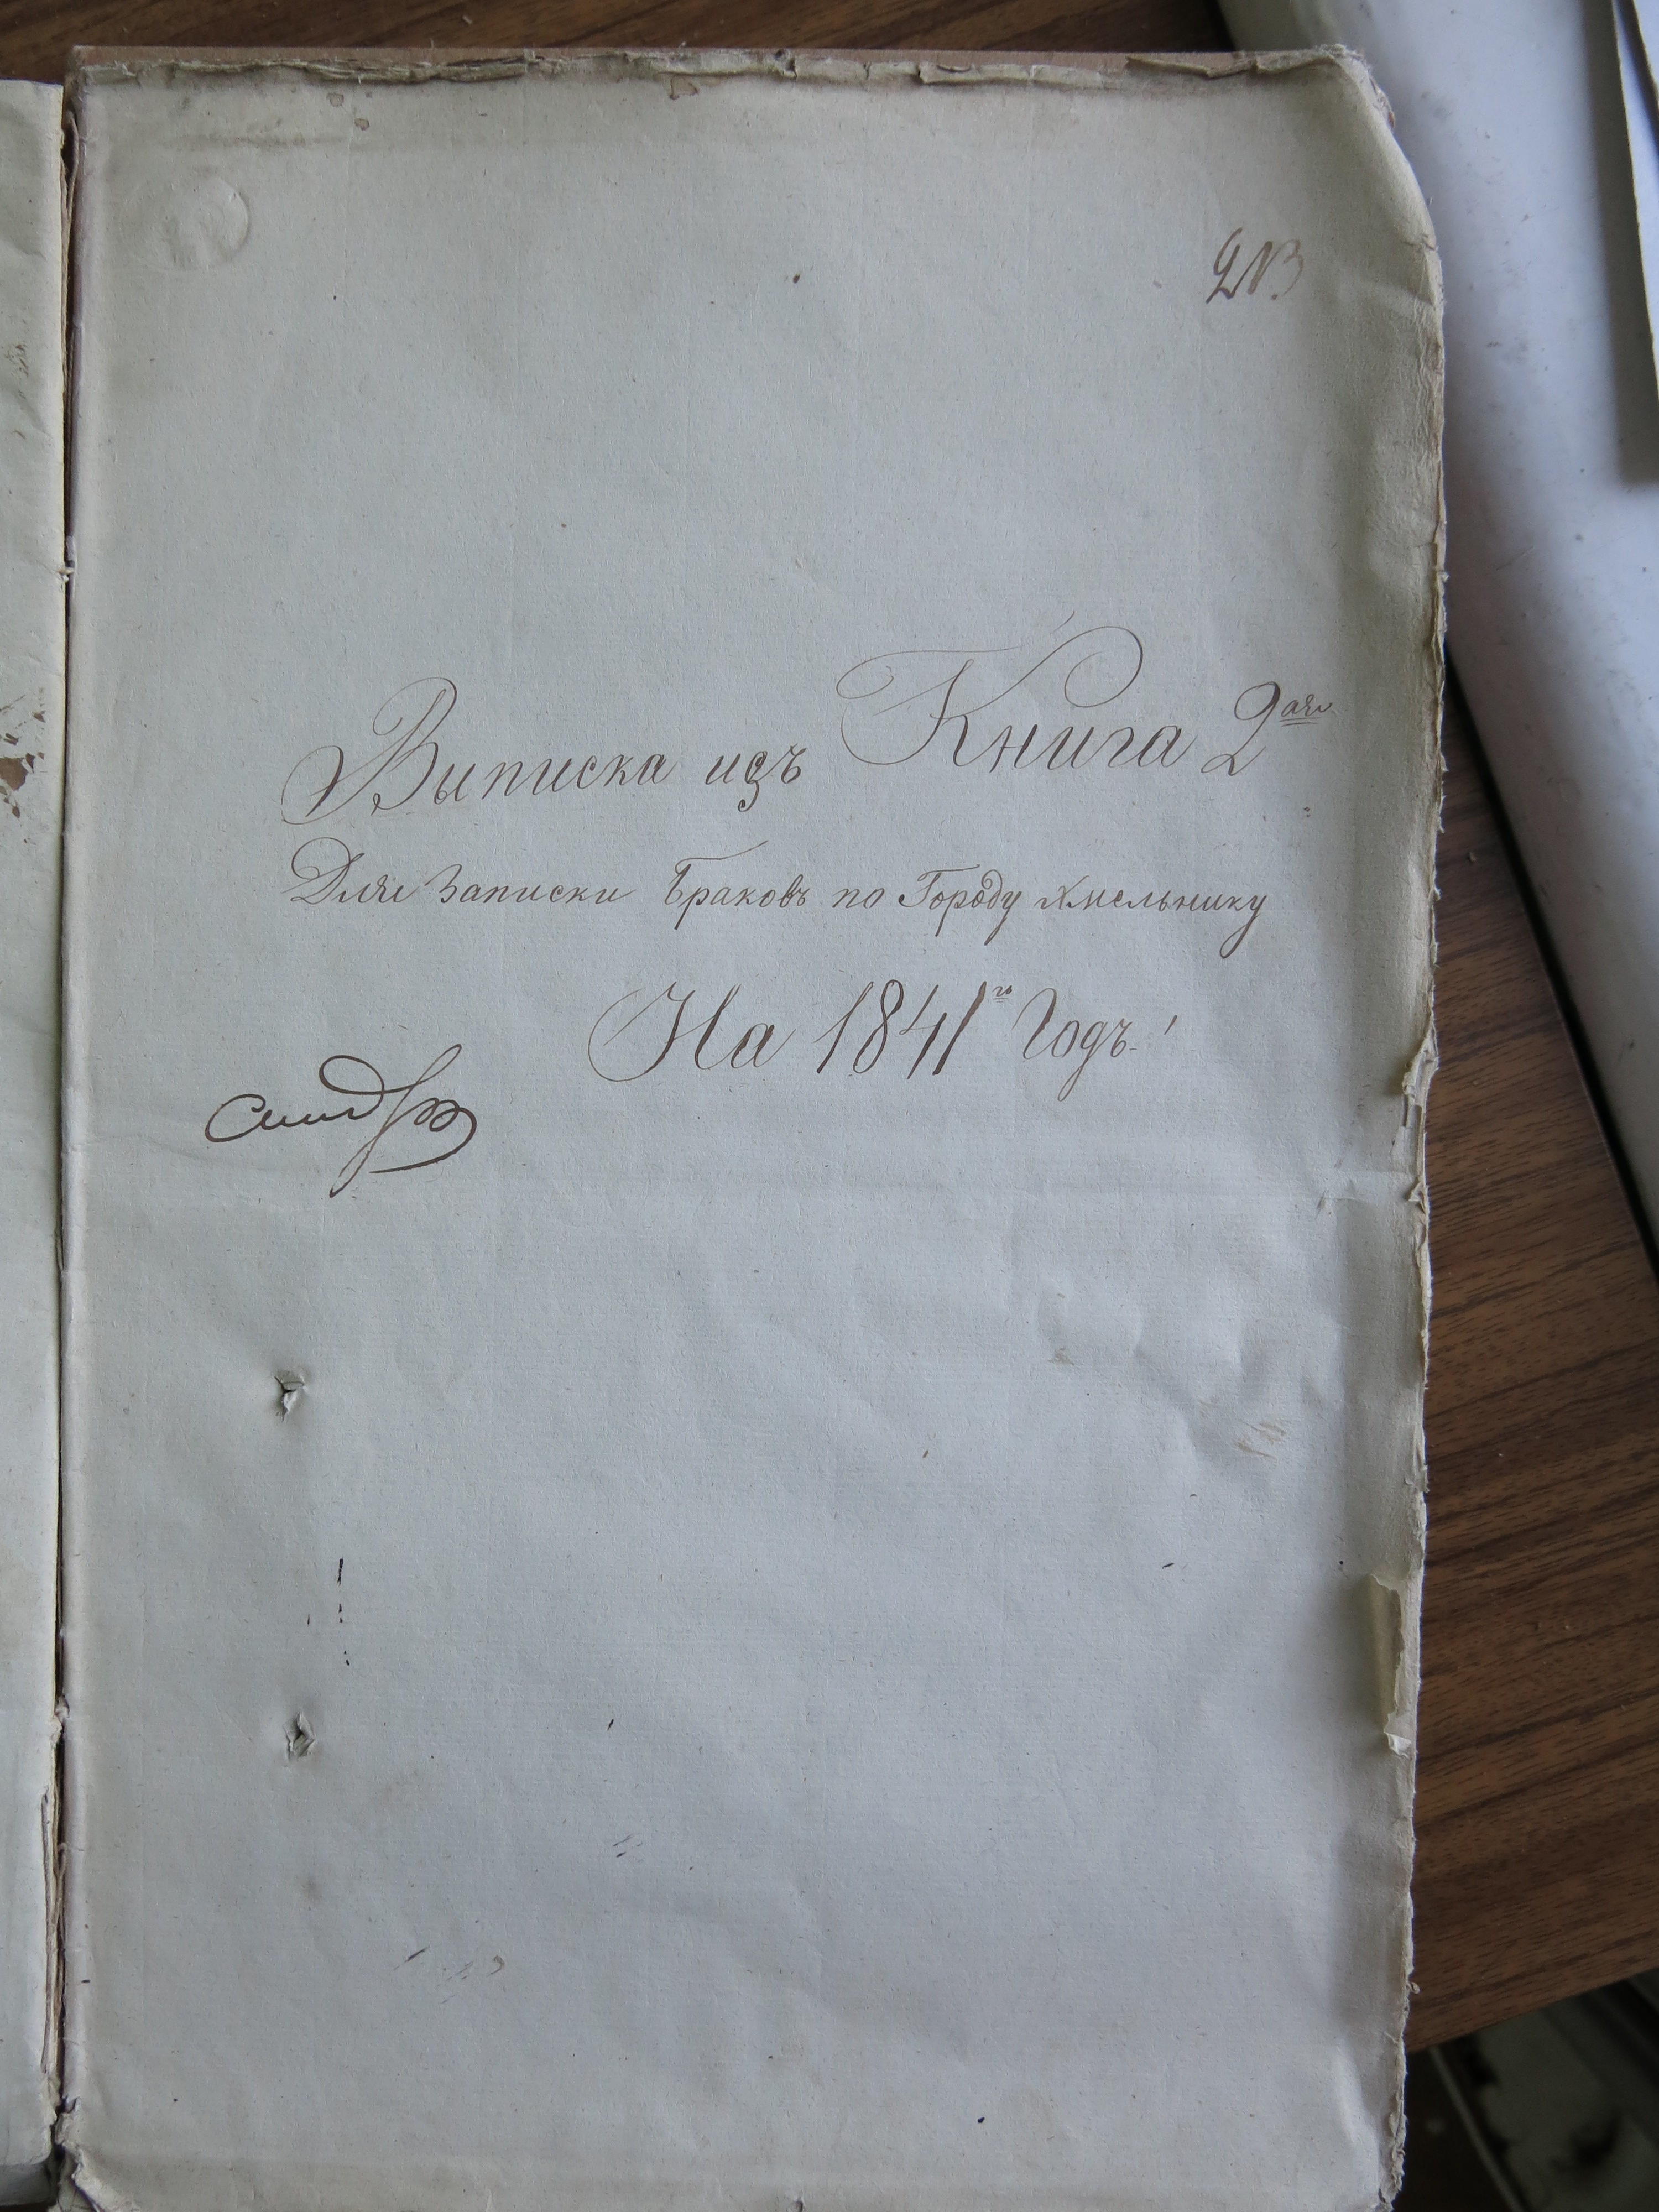 213
Выписка изъ Книга 2ая
Для Записки Браковъ по Городу Хмельнику
На 1841го Годъ!